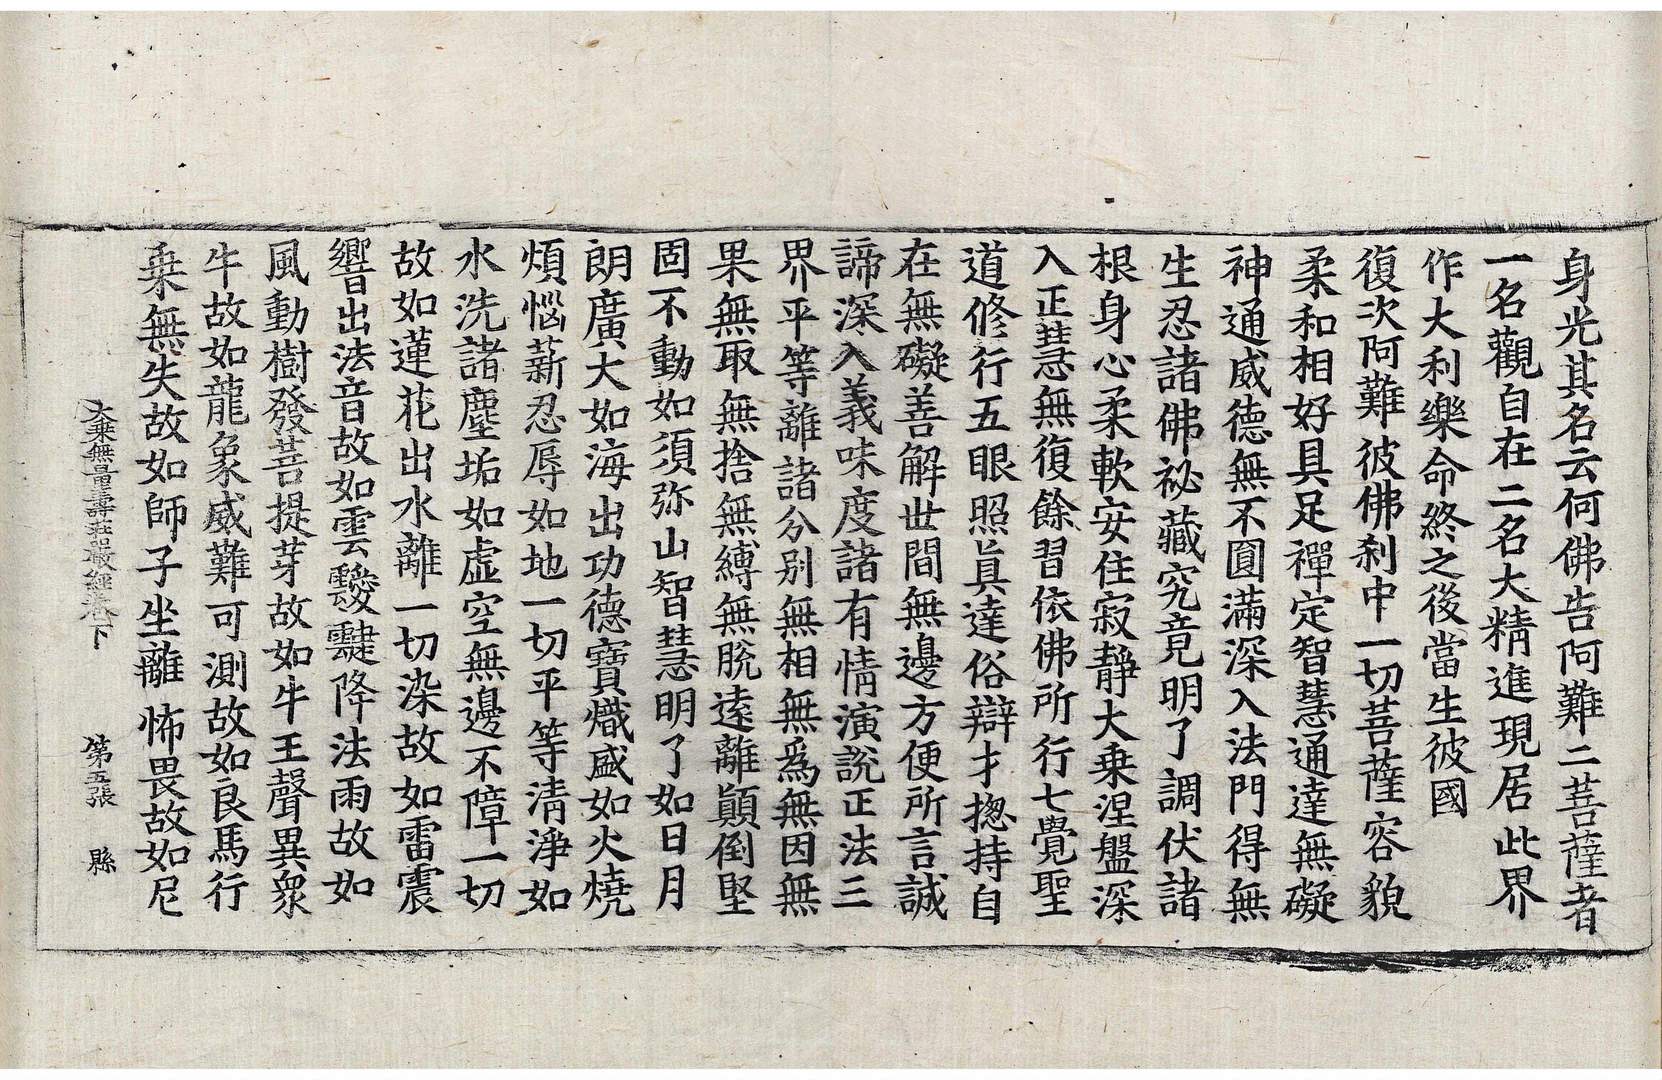 身光其名云何佛告阿難二菩薩者
一名觀自在二名大精進現居此界
作大利樂命終之後當生彼國
復次阿難彼佛刹中一切菩薩容貌
柔和相好具足禪定智慧通達無礙
神通威德無不圓滿深入法門得無
生忍諸佛祕藏究竟明了調伏諸
根身心柔軟安住寂靜大乗涅盤深
入正慧無復餘習依佛所行七覺聖
道修行五眼照真達俗辯才揔持自
在無礙善解世間無邊方便所言誠
諦深入義味度諸有情演説正法三
界平等離諸分別無相無爲無因無
果無取無捨無縛無脫遠離顚倒堅
固不動如須弥山智慧明了如日月
朗廣大如海出功德寶熾盛如火燒
煩惱薪忍辱如地一切平等清淨如
水洗諸塵垢如虛空無邊不障一切
故如蓮花出水離一切染故如雷震
響出法音故如雲靉靆降法雨故如
風動樹發菩提芽故如牛王聲異衆
牛故如龍象威難可測故如良馬行
乗無失故如師子坐離怖畏故如尼
大乗無量壽莊嚴經卷下 第五張 縣